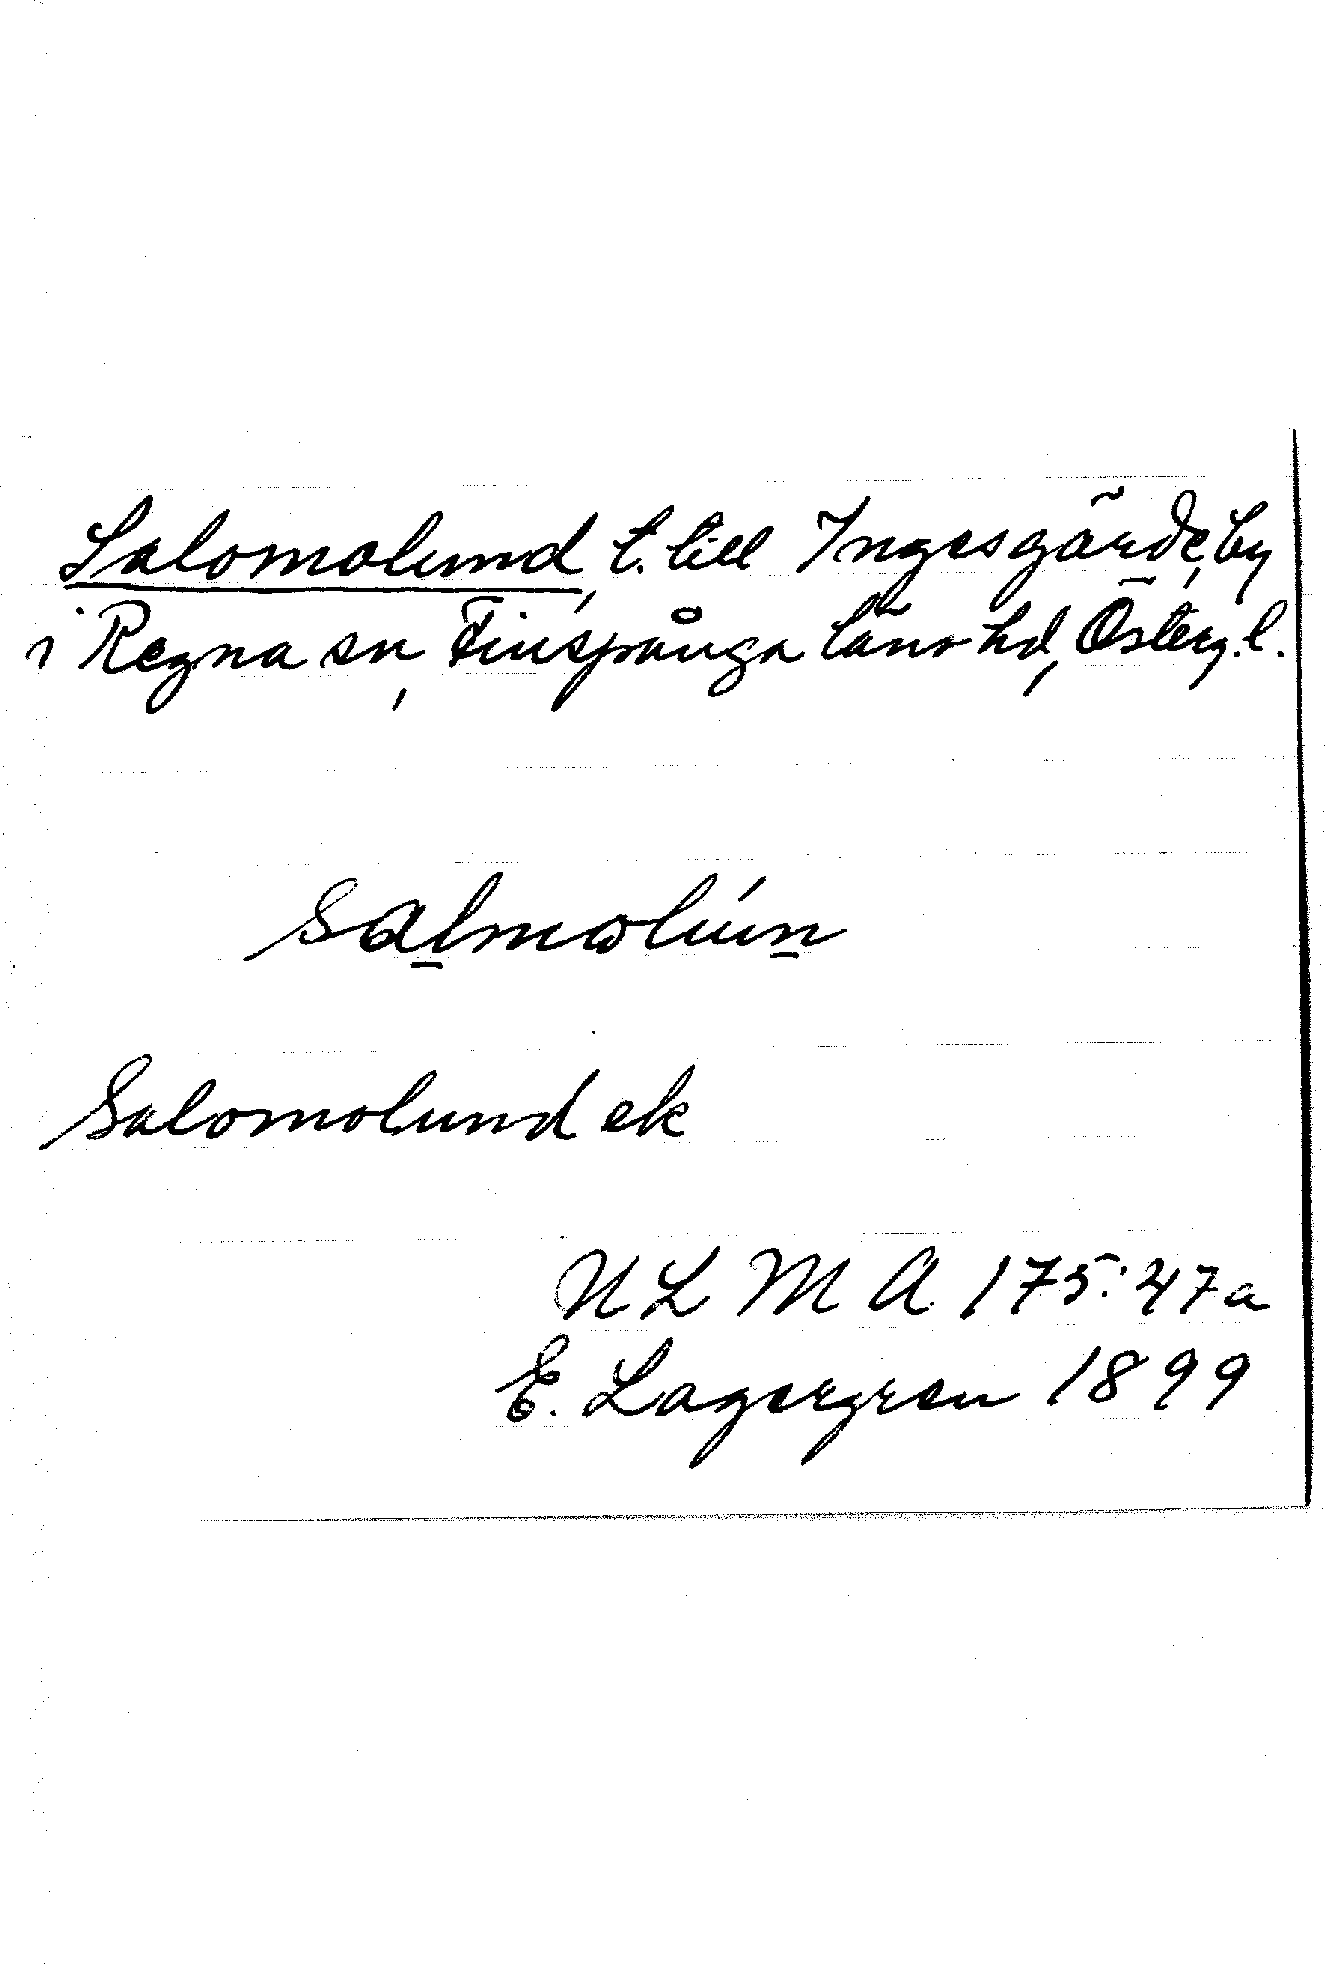 Salomolund, t. till Ingesgärde, by
i Regna sn, Finspånga läns hd, Österg. l.
salmωlún
Salomolund ek
ULMA 175:47a
E. Lagergren 1899